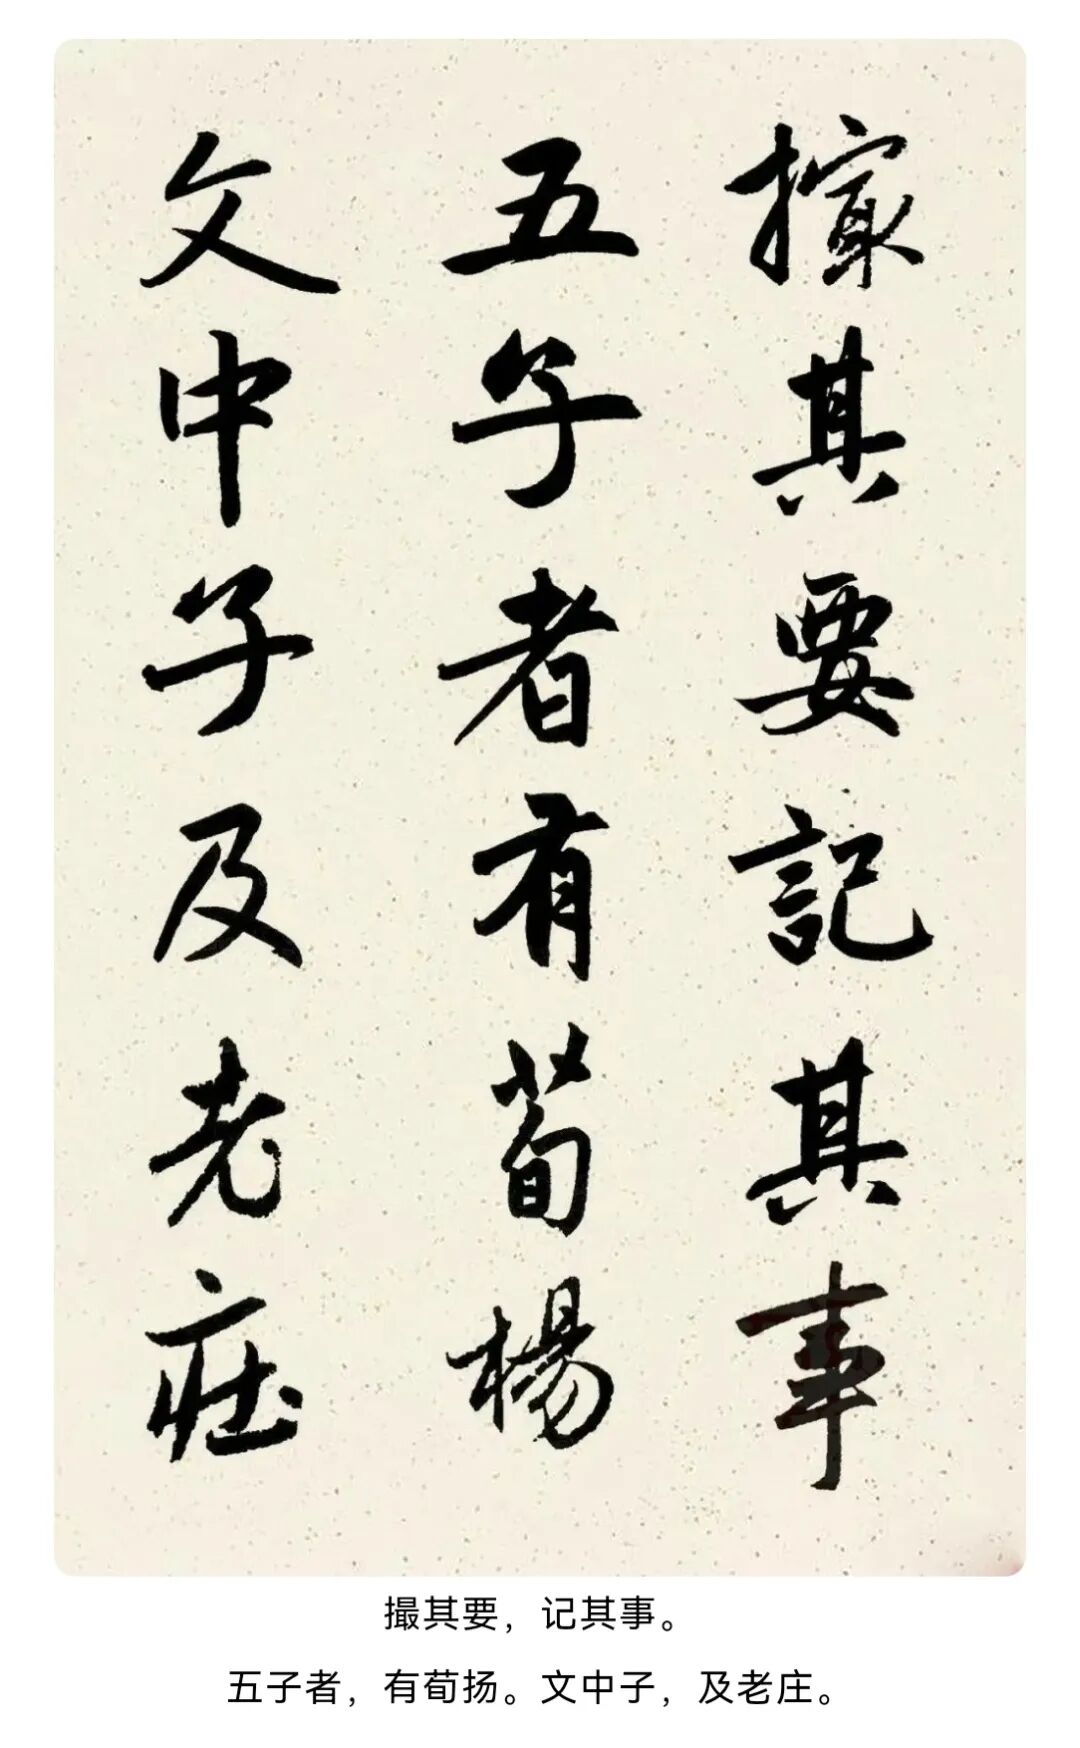 撮其要記其事
五子者有荀楊
文中子及老庄
撮其要，记其事。
五子者，有荀扬。文中子，及老庄。